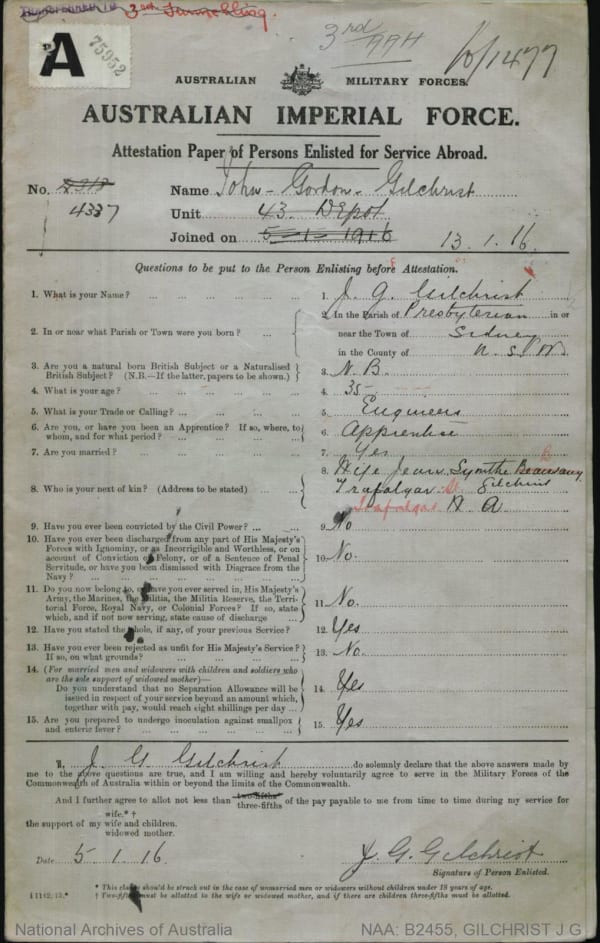 3rd Tunnelling.
A
75952
3rd AGH
AUSTRALIAN MILITARY FORCES.
AUSTRALIAN IMPERIAL FORCE.
Attestation Paper of Persons Enlisted for Service Abroad.
No. 4337
Name John - Gordon - Gilchrist
Unit 43 - Depot
Joined on 5-1-1916 13.1.16.
Questions to be put to the Person Enlisting before Attestation.
1. What is your Name? ... 1. J. G. Gilchrist
2. In or near what Parish or Town were you born? ... 2. In the Parish of Presbyterian in or
near the Town of Sidney
in the County of N. S. W.
3. Are you a natural born British Subject or a Naturalised
British Subject? (N.B.—If the latter, papers to be shown.) 3. N. B.
4. What is your age? ... 4. 35
5. What is your Trade or Calling? ... 5. Engineers
6. Are you, or have you been an Apprentice? If so, where, to
whom, and for what period? ... 6. Apprentice
7. Are you married? ... 7. Yes
8. Who is your next of kin? (Address to be stated) ... 8. Wife Jean
Trafalgar St. Gilchrist
Trafalgar
9. Have you ever been convicted by the Civil Power? ... 9. No
10. Have you ever been discharged from any part of His Majesty's
Forces with Ignominy, or as Incorrigible and Worthless, or on
account of Conviction of Felony, or of a Sentence of Penal
Servitude, or have you been dismissed with Disgrace from the
Navy? ... 10. No.
11. Do you now belong to, or have you ever served in, His Majesty's
Army, the Marines, the Militia, the Militia Reserve, the Terri-
torial Force, Royal Navy, or Colonial Forces? If so, state
which, and if not now serving, state cause of discharge ... 11. No.
12. Have you stated the whole, if any, of your previous Service? 12. Yes
13. Have you ever been rejected as unfit for His Majesty's Service?
If so, on what grounds? ... 13. No.
14. (For married men and widowers with children and soldiers who
are the sole support of widowed mother)—
Do you understand that no Separation Allowance will be
issued in respect of your service beyond an amount which,
together with pay, would reach eight shillings per day ... 14. Yes
15. Are you prepared to undergo inoculation against smallpox
and enteric fever? ... 15. Yes
I, J. G. Gilchrist do solemnly declare that the above answers made by
me to the above questions are true, and I am willing and hereby voluntarily agree to serve in the Military Forces of the
Commonwealth of Australia within or beyond the limits of the Commonwealth.
And I further agree to allot not less than two-fifths three-fifths of the pay payable to me from time to time during my service for
wife.* †
the support of my wife and children.
widowed mother.
Date 5.1.16.
J. G. Gilchrist
Signature of Person Enlisted.
* This clause should be struck out in the case of unmarried men or widowers without children under 18 years of age.
† Two-fifths must be allotted to the wife or widowed mother, and if there are children three-fifths must be allotted.
National Archives of Australia
NAA: B2455, GILCHRIST J G